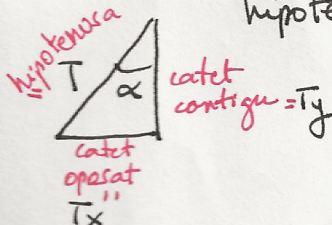 hipote
"hipotenusa
T
α
catet
contigu = Ty
catet
oposat
"
Tx